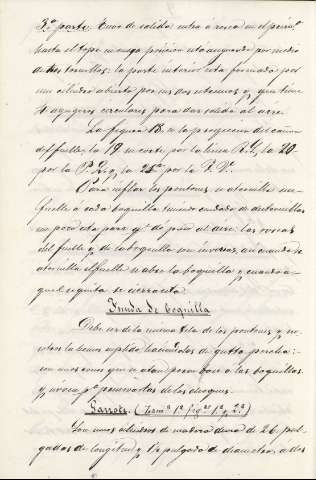 3.ª parte. Tubo de salida entra á rosca en el primº
hasta el tope en cuya posicion está asegurado por medio
de tres tornillos: la parte interior está formada por
un cilindro abierto por sus dos estremos y que tiene
agugeros circulares para dar salida al aire.
La figura 18. es la proyeccion del cañon
del fuelle, la 19 un corte por la linea R.Y, la 20
por la P. y la 21ª por la T.V.
Para inflar los pontones se atornilla un
fuelle á cada boquilla teniendo cuidado de destornillar
un poco esta para qe. dé paso al aire. las roscas
del fuelle y de la boquilla son inversas, asi cuando se
atornilla el fuelle se abre la boquilla y cuando a-
quel se quita se cierra esta.
Funda de boquilla
Debe ser de la misma tela de los pontones y no-
sotros la hemos suplido haciendolas de gutta percha:
son unos conos que se atan por su base á las boquillas
y sirven pª preservarlas de los choques.
Garrote. (Lamª 1ª figas 1ª y 2ª)
Son unos cilindros de madera dura de 26 pul-
gadas de longitud y 1½ pulgada de diametro, á los